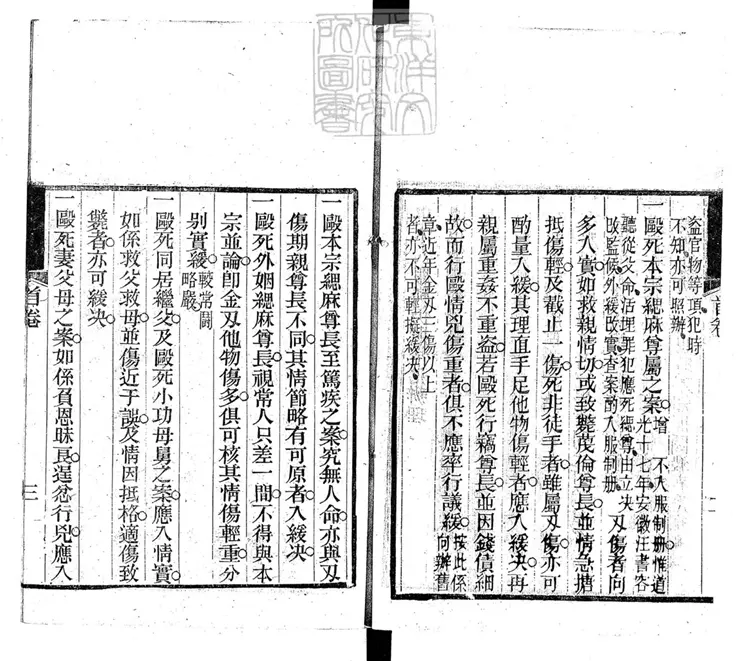 盜官物等項犯時
不知亦可照辦
一毆死本宗緦麻尊屬之案增 不入服制册惟道
光十七年安徽汪書容
聽從父命活埋罪犯應死緦尊由立决
改監候外緩改實查案酌入服制册 刃傷者向
多入實如救親情切或致斃茂倫尊長並情急搪
抵傷輕及截止一傷死非徒手者雖屬刃傷亦可
酌量入緩其理直手足他物傷輕者應入緩决再
親屬重姦不重盜若毆死行竊尊長並因錢債細
故而行毆情兇傷重者俱不應率行議緩按此係
向辦舊
章近年金刃三傷以上
者亦不可輕擬緩决
一毆本宗緦麻尊長至篤疾之案究無人命亦與刃
傷期親尊長不同其情節略有可原者入緩决
一毆死外姻緦麻尊長視常人只差一間不得與本
宗並論卽金刃他物傷多俱可核其情傷輕重分
别實緩較常鬭
略嚴
一毆死同居繼父及毆死小功母舅之案應入情實
如係救父救母並傷近于誤及情因抵格適傷致
斃者亦可緩决
一毆死妻父母之案如係負恩昧良逞忿行兇應入
首卷
三